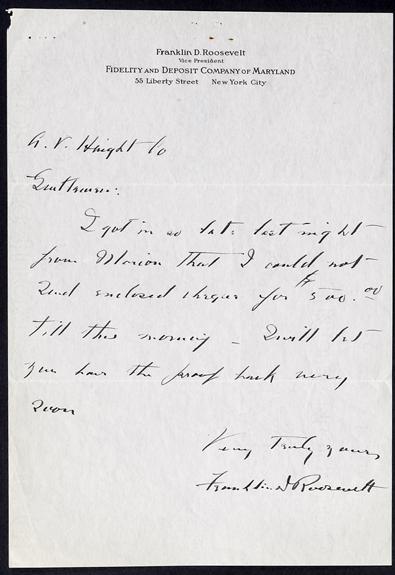 Franklin D. Roosevelt
Vice President
FIDELITY AND DEPOSIT COMPANY OF MARYLAND
55 Liberty Street New York City
A. V. Haight Co
Gentlemen:
I got in so late last night
from Marion that I could not
send enclosed cheque for $500.00
till this morning – I will let
you have the proof back very
soon
Very truly yours,
Franklin D Roosevelt